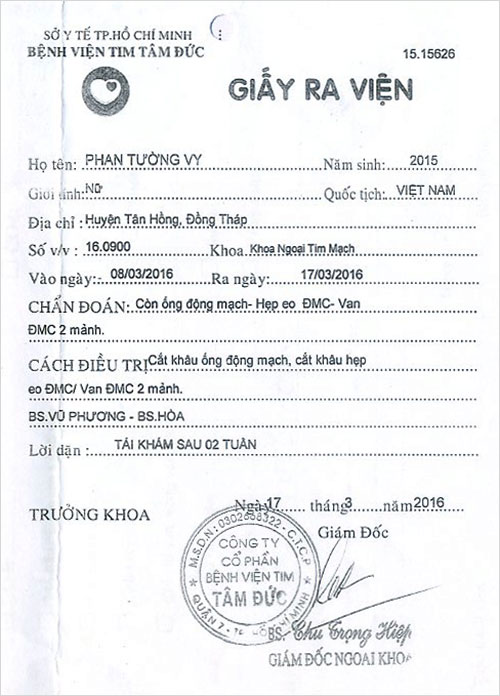 SỞ Y TẾ TP.HỒ CHÍ MINH
BỆNH VIỆN TIM TÂM ĐỨC
15.15626
GIẤY RA VIỆN
Họ tên: PHAN TƯỜNG VY Năm sinh: 2015
Giới tính: Nữ Quốc tịch: VIỆT NAM
Địa chỉ : Huyện Tân Hồng, Đồng Tháp
Số v/v : 16.0900 Khoa Khoa Ngoại Tim Mạch
Vào ngày: 08/03/2016 Ra ngày: 17/03/2016
CHẨN ĐOÁN: Còn ống động mạch- Hẹp eo ĐMC- Van
ĐMC 2 mảnh.
CÁCH ĐIỀU TRỊ Cắt khâu ống động mạch, cắt khâu hẹp
eo ĐMC/ Van ĐMC 2 mảnh.
BS.VŨ PHƯƠNG - BS.HÒA
Lời dặn : TÁI KHÁM SAU 02 TUẦN
Ngày 17 tháng 3 năm 2016
TRƯỞNG KHOA Giám Đốc
M.S.D.N: 0302668322 - C.T.C.P
CÔNG TY
CỔ PHẦN
BỆNH VIỆN TIM
TÂM ĐỨC
QUẬN 7 - TP. HỒ CHÍ MINH
BS. Chu Trọng Hiệp
GIÁM ĐỐC NGOẠI KHOA